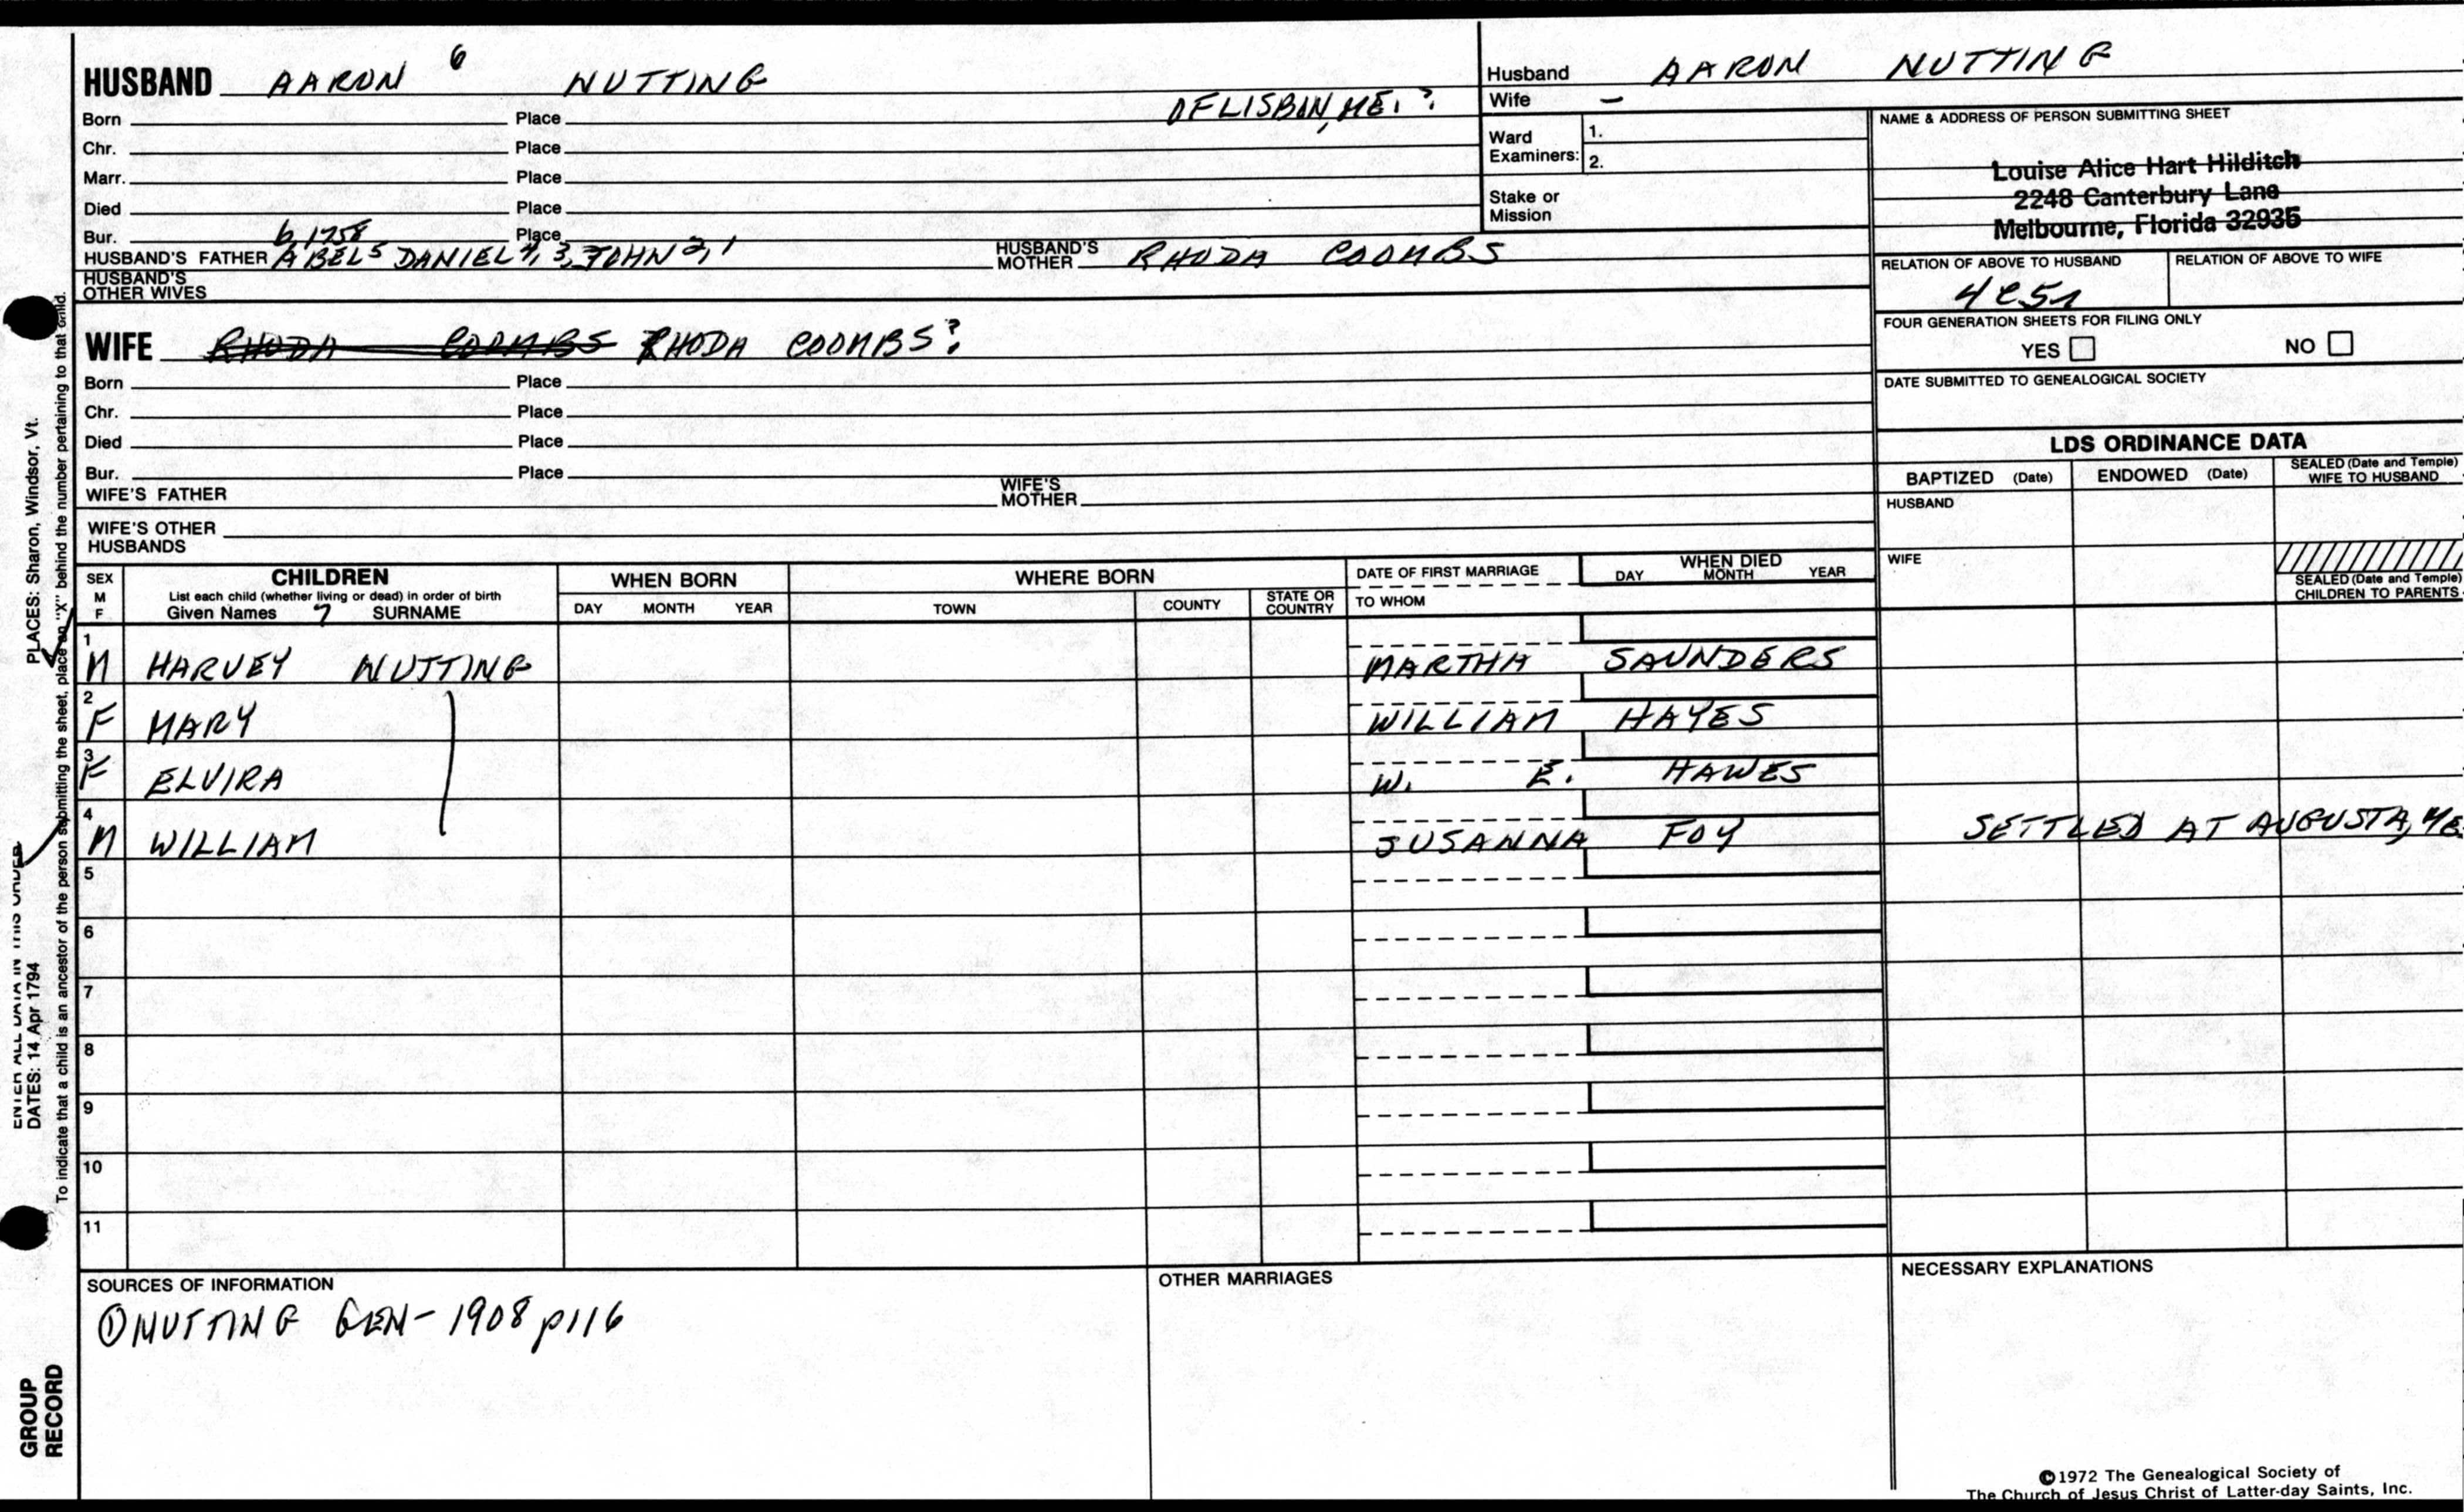 HUSBAND AARON 6 NUTTING
OF LISBON, ME. ?
Born Place
Chr. Place
Marr. Place
Died Place
Bur. Place
b 1758
HUSBAND'S FATHER ABEL 5 DANIEL 4, 3, JOHN 2, 1 HUSBAND'S MOTHER RHODA COOMBS
HUSBAND'S OTHER WIVES
Husband AARON NUTTING
Wife –
Ward Examiners: 1.
2.
Stake or Mission
NAME & ADDRESS OF PERSON SUBMITTING SHEET
Louise Alice Hart Hilditch
2248 Canterbury Lane
Melbourne, Florida 32935
RELATION OF ABOVE TO HUSBAND RELATION OF ABOVE TO WIFE
4C5R
FOUR GENERATION SHEETS FOR FILING ONLY
YES NO
DATE SUBMITTED TO GENEALOGICAL SOCIETY
WIFE RHODA COOMBS RHODA COOMBS?
Born Place
Chr. Place
Died Place
Bur. Place
WIFE'S FATHER WIFE'S MOTHER
WIFE'S OTHER HUSBANDS
LDS ORDINANCE DATA
BAPTIZED (Date) ENDOWED (Date) SEALED (Date and Temple) WIFE TO HUSBAND
HUSBAND
WIFE
SEALED (Date and Temple) CHILDREN TO PARENTS
SEX M F
CHILDREN
List each child (whether living or dead) in order of birth
Given Names 7 SURNAME
WHEN BORN
DAY MONTH YEAR
WHERE BORN
TOWN COUNTY STATE OR COUNTRY
DATE OF FIRST MARRIAGE
TO WHOM
WHEN DIED
DAY MONTH YEAR
1 M HARVEY NUTTING MARTHA SAUNDERS
2 F MARY WILLIAM HAYES
3 F ELVIRA W. E. HAWES
4 M WILLIAM SUSANNA FOY SETTLED AT AUGUSTA, ME
5
6
7
8
9
10
11
SOURCES OF INFORMATION
① NUTTING GEN- 1908 p116
OTHER MARRIAGES
NECESSARY EXPLANATIONS
©1972 The Genealogical Society of
The Church of Jesus Christ of Latter-day Saints, Inc.
PLACES: Sharon, Windsor, Vt.
To indicate that a child is an ancestor of the person submitting the sheet, place an "X" behind the number pertaining to that child.
ENTER ALL DATA IN THIS ORDER
DATES: 14 Apr 1794
GROUP
RECORD